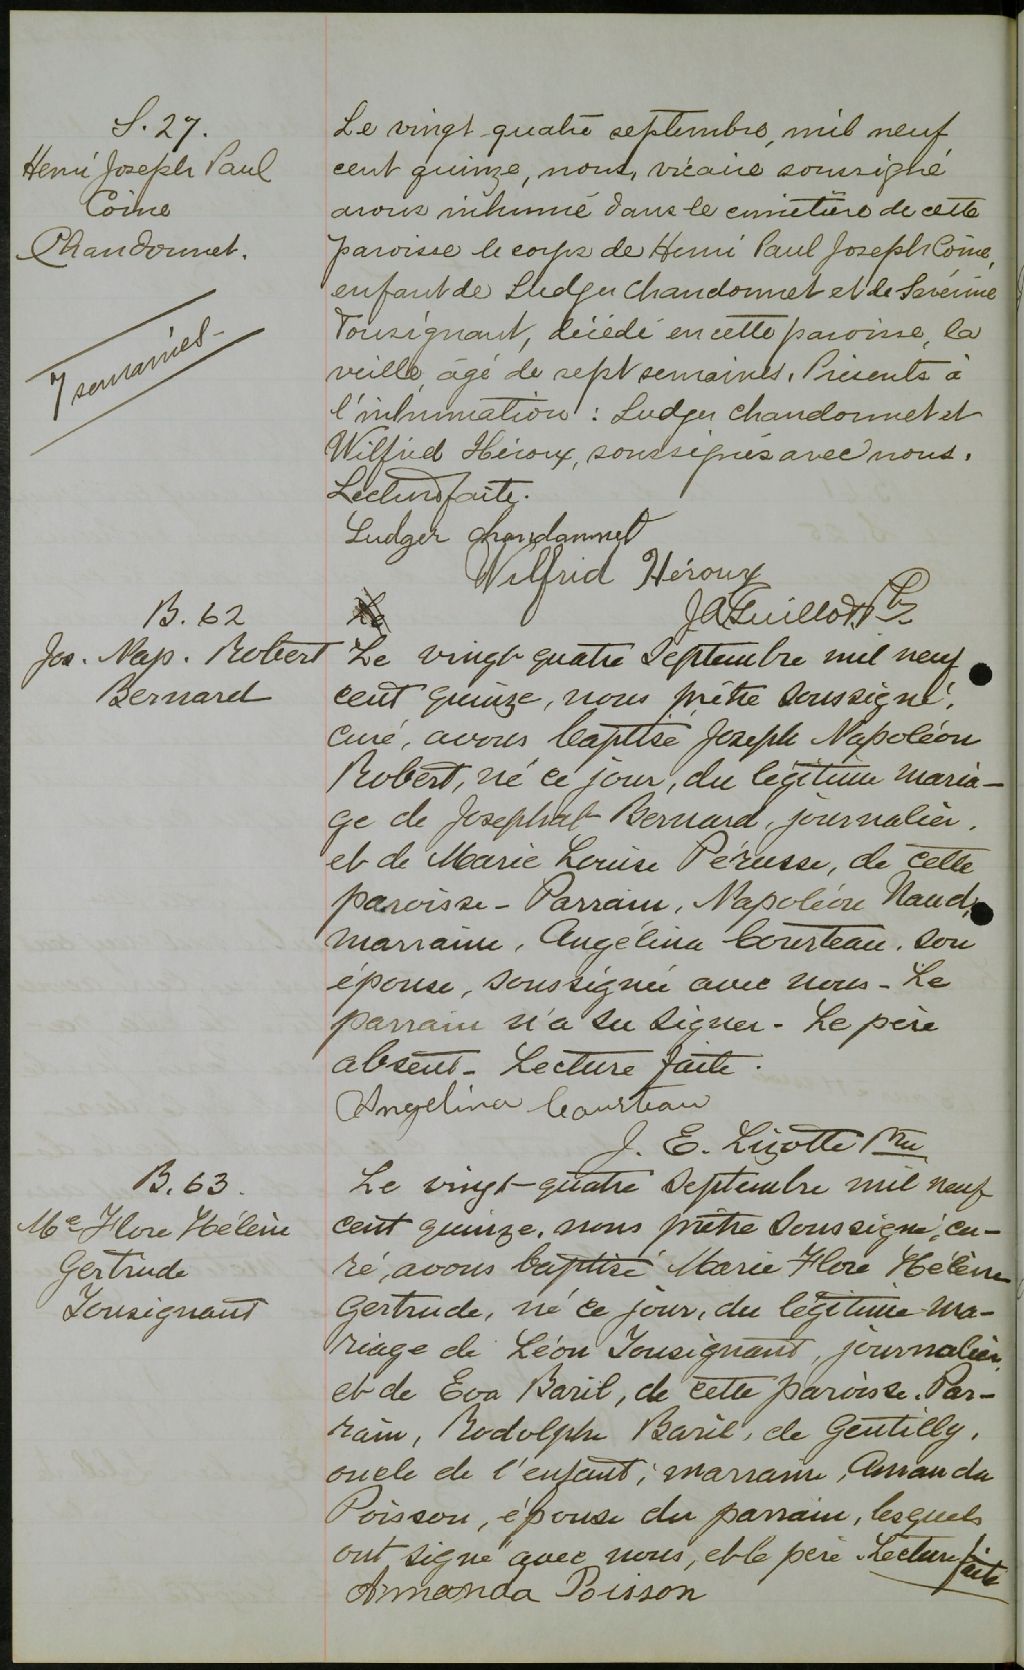 S. 27.
Henri Joseph Paul
Côme
Chandonnet.
7 semaines
Le vingt-quatre septembre, mil neuf
cent quinze, nous, vicaire soussigné
avons inhumé dans le cimetière de cette
paroisse le corps de Henri Paul Joseph Côme,
enfant de Ludger Chandonnet et de Sévérine
Tousignant, décédé en cette paroisse, la
veille, âgé de sept semaines. Présents à
l'inhumation : Ludger Chandonnet et
Wilfrid Héroux, soussignés avec nous.
Lecture faite.
Ludger Chandonnet
Wilfrid Héroux
J A Guillot Ptr
B. 62
Jos. Nap. Robert
Bernard
Le
Le vingt-quatre Septembre mil neuf
cent quinze, nous prêtre soussigné,
curé, avons baptisé Joseph Napoléon
Robert, né ce jour, du légitime maria-
ge de Josephat Bernard, journalier,
et de Marie Louise Pérusse, de cette
paroisse - Parrain, Napoléon Naud,
marraine, Angélina Courteau, son
épouse, soussignée avec nous - Le
parrain n'a su signer - Le père
absent - Lecture faite.
Angelina Courteau
J. E. Lizotte Ptre
B. 63.
Mie Flore Hélène
Gertrude
Tousignant
Le vingt-quatre Septembre mil neuf
cent quinze, nous prêtre soussigné, cu-
ré, avons baptisé Marie Flore Hélène
Gertrude, né ce jour, du légitime ma-
riage de Léon Tousignant, journalier,
et de Eva Baril, de cette paroisse. Par-
rain, Rodolphe Baril, de Gentilly,
oncle de l'enfant; marraine, Amanda
Poisson, épouse du parrain, lesquels
ont signé avec nous, et le père. Lecture faite
Armanda Poisson